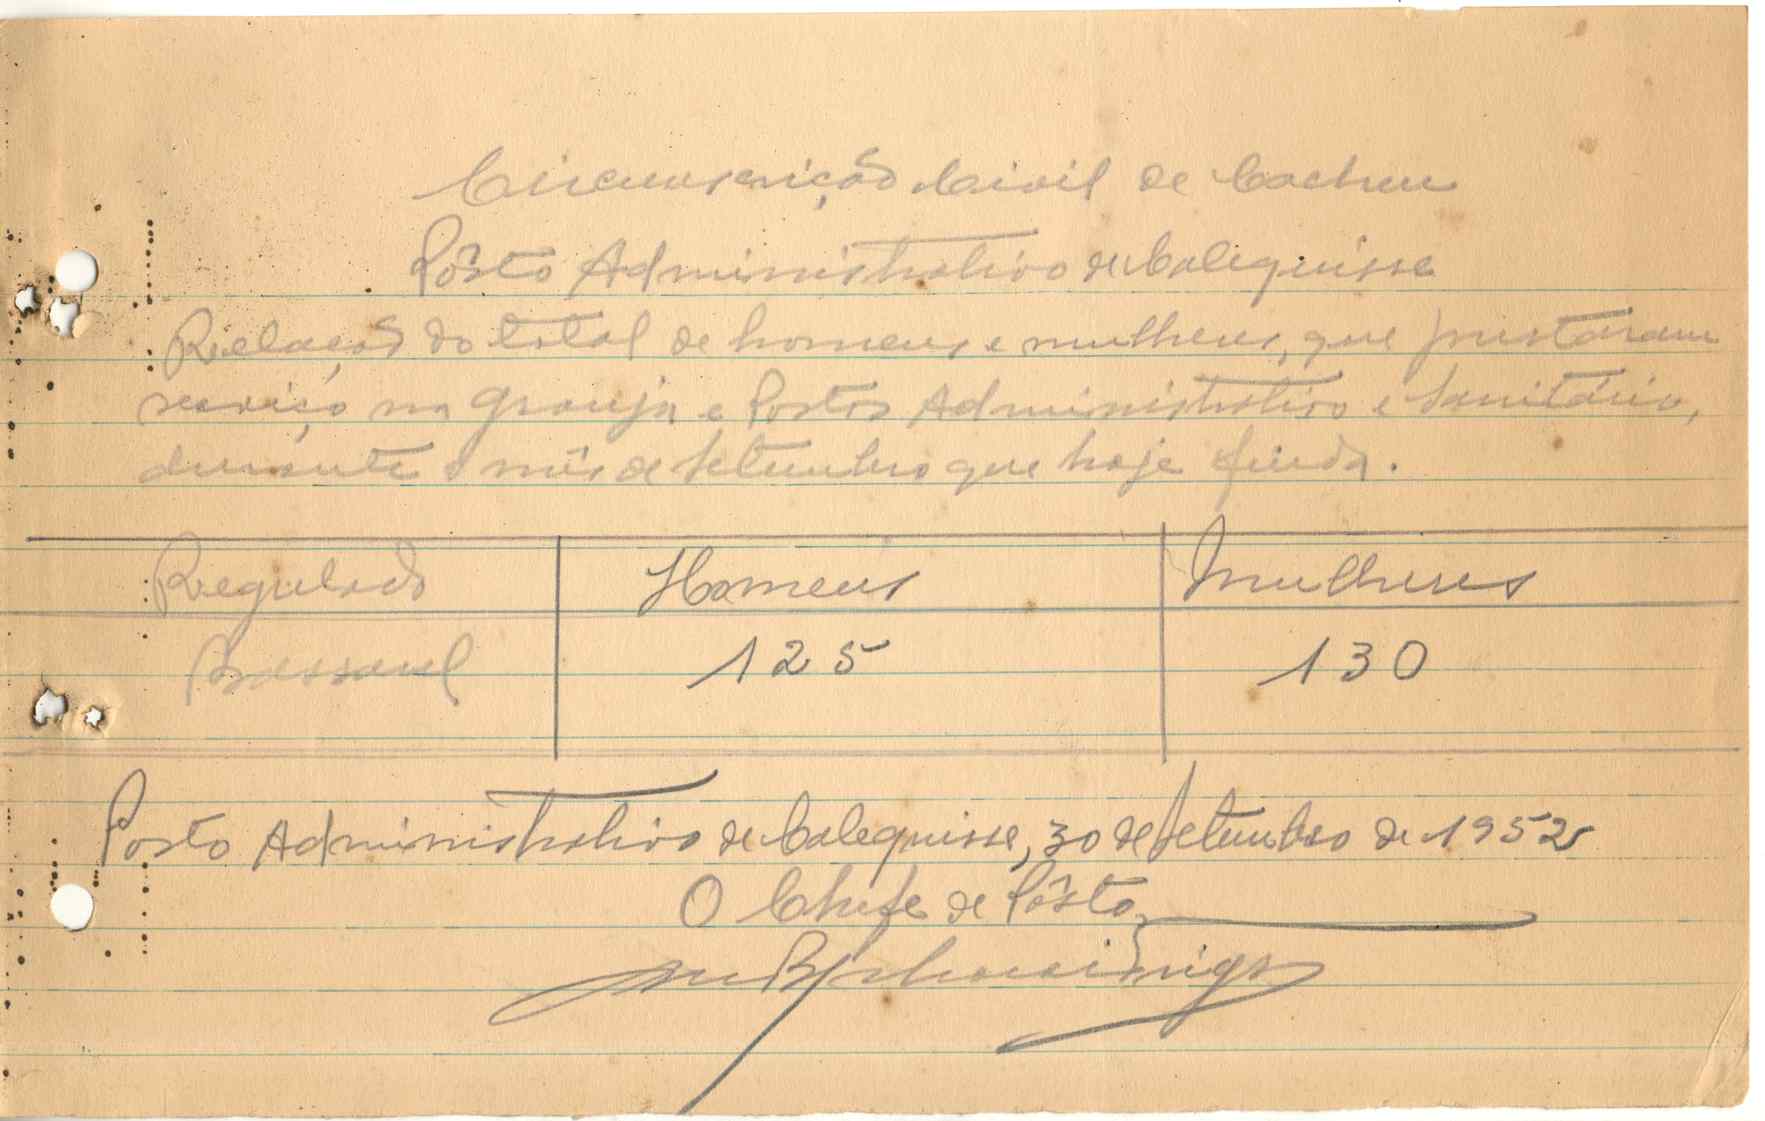 Circunscrição Civil de Cacheu
Pôsto Administrativo de Calequisse
Relação do total de homens e mulheres, que prestaram
serviço na Granja e Postos Administrativo e Sanitário,
durante o mês de Setembro que hoje finda.
Regulado Homens Mulheres
Bassarel 125 130
Posto Administrativo de Calequisse, 30 de Setembro de 1952
O Chefe de Pôsto,